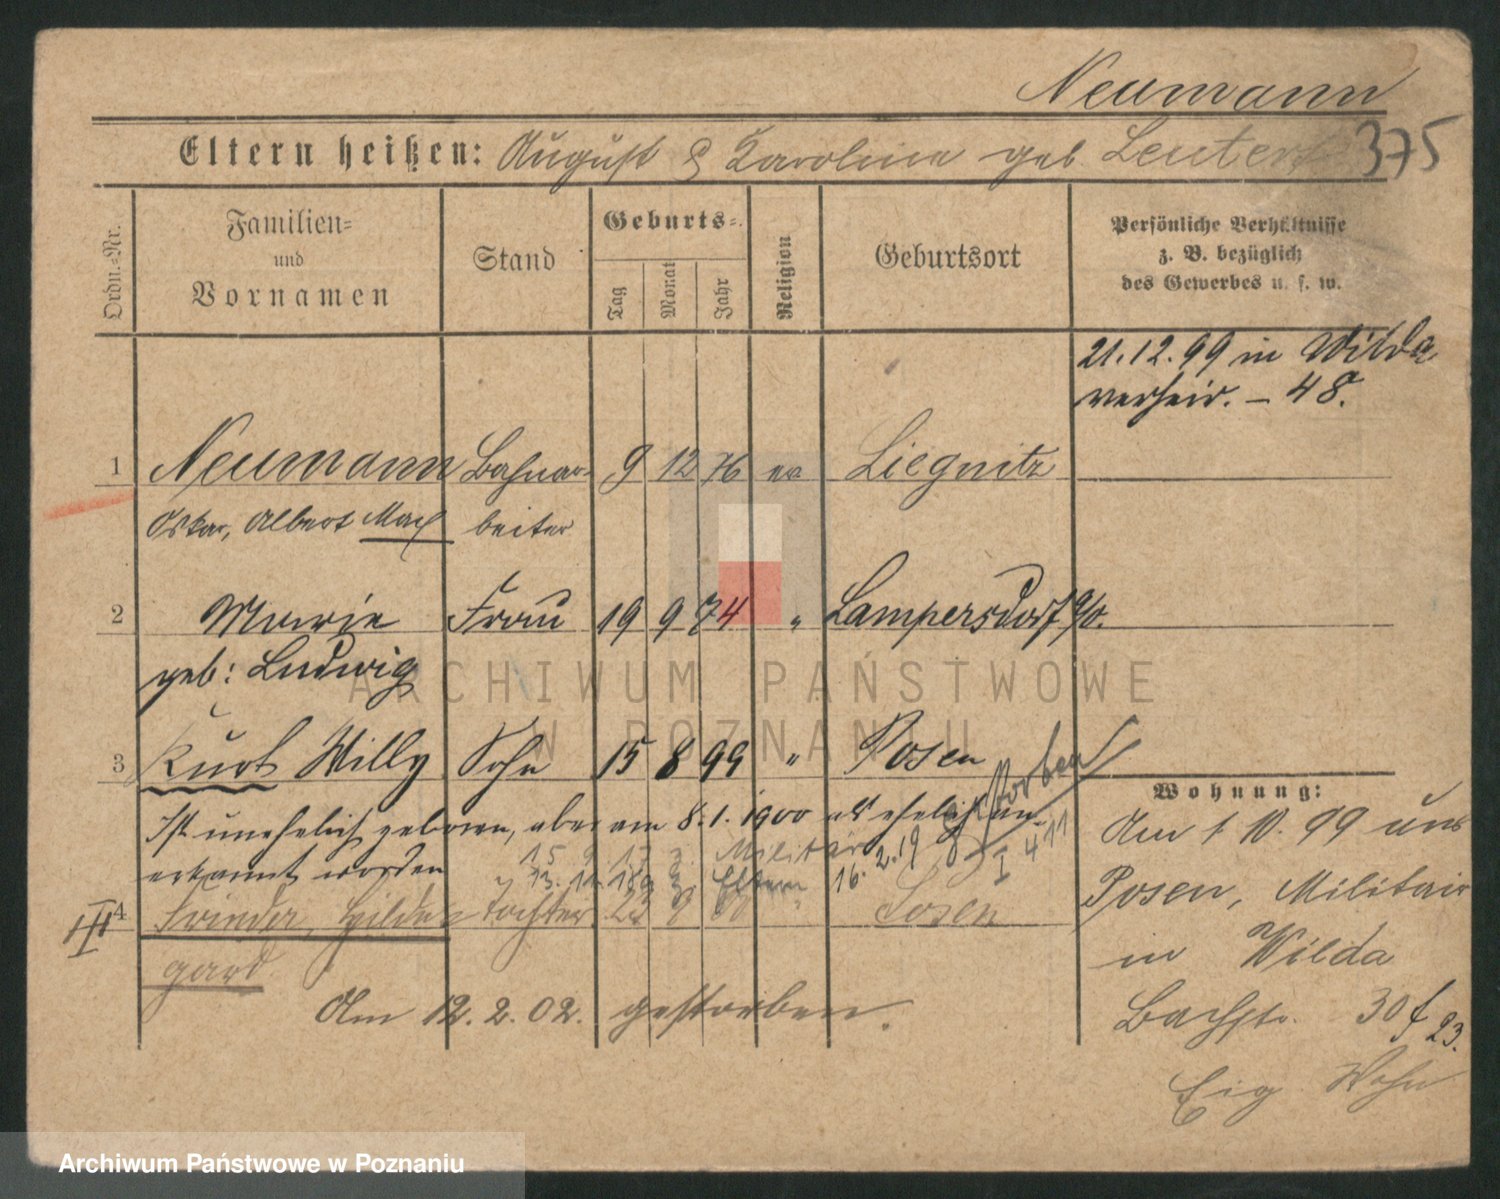 Neumann
Eltern heißen: August & Karoline geb Leutert 375
Ordn.-Nr.
Familien-
und
Vornamen
Stand
Geburts-
Tag
Monat
Jahr
Religion
Geburtsort
Persönliche Verhältnisse
z. B. bezüglich
des Gewerbes u. s. w.
21.12.99 in Wilda
verheir. – 48.
1 Neumann Bahnar- 9 12 76 ev Liegnitz
Oskar, Albert Max beiter
2 Marie Frau 19 9 74 " Lampersdorf
geb: Ludwig
ARCHIWUM PAŃSTWOWE
W POZNANIU
3 Kurt Willy Sohn 15 8 99 " Posen
Ist unehelich geboren, aber am 8.1.1900 als ehelich an-
erkannt worden
15 9 Militär
13. 11. Eltern 16.2.19
gestorben
I 411
III
4 Frieder, Hilde- Tochter 23 9 " Posen
gard
Am 12.2.02. gestorben.
Wohnung:
Am 1 10. 99 aus
Posen, Militair
in Wilda
Bachstr. 30 f 23.
Eig Wohn
Archiwum Państwowe w Poznaniu